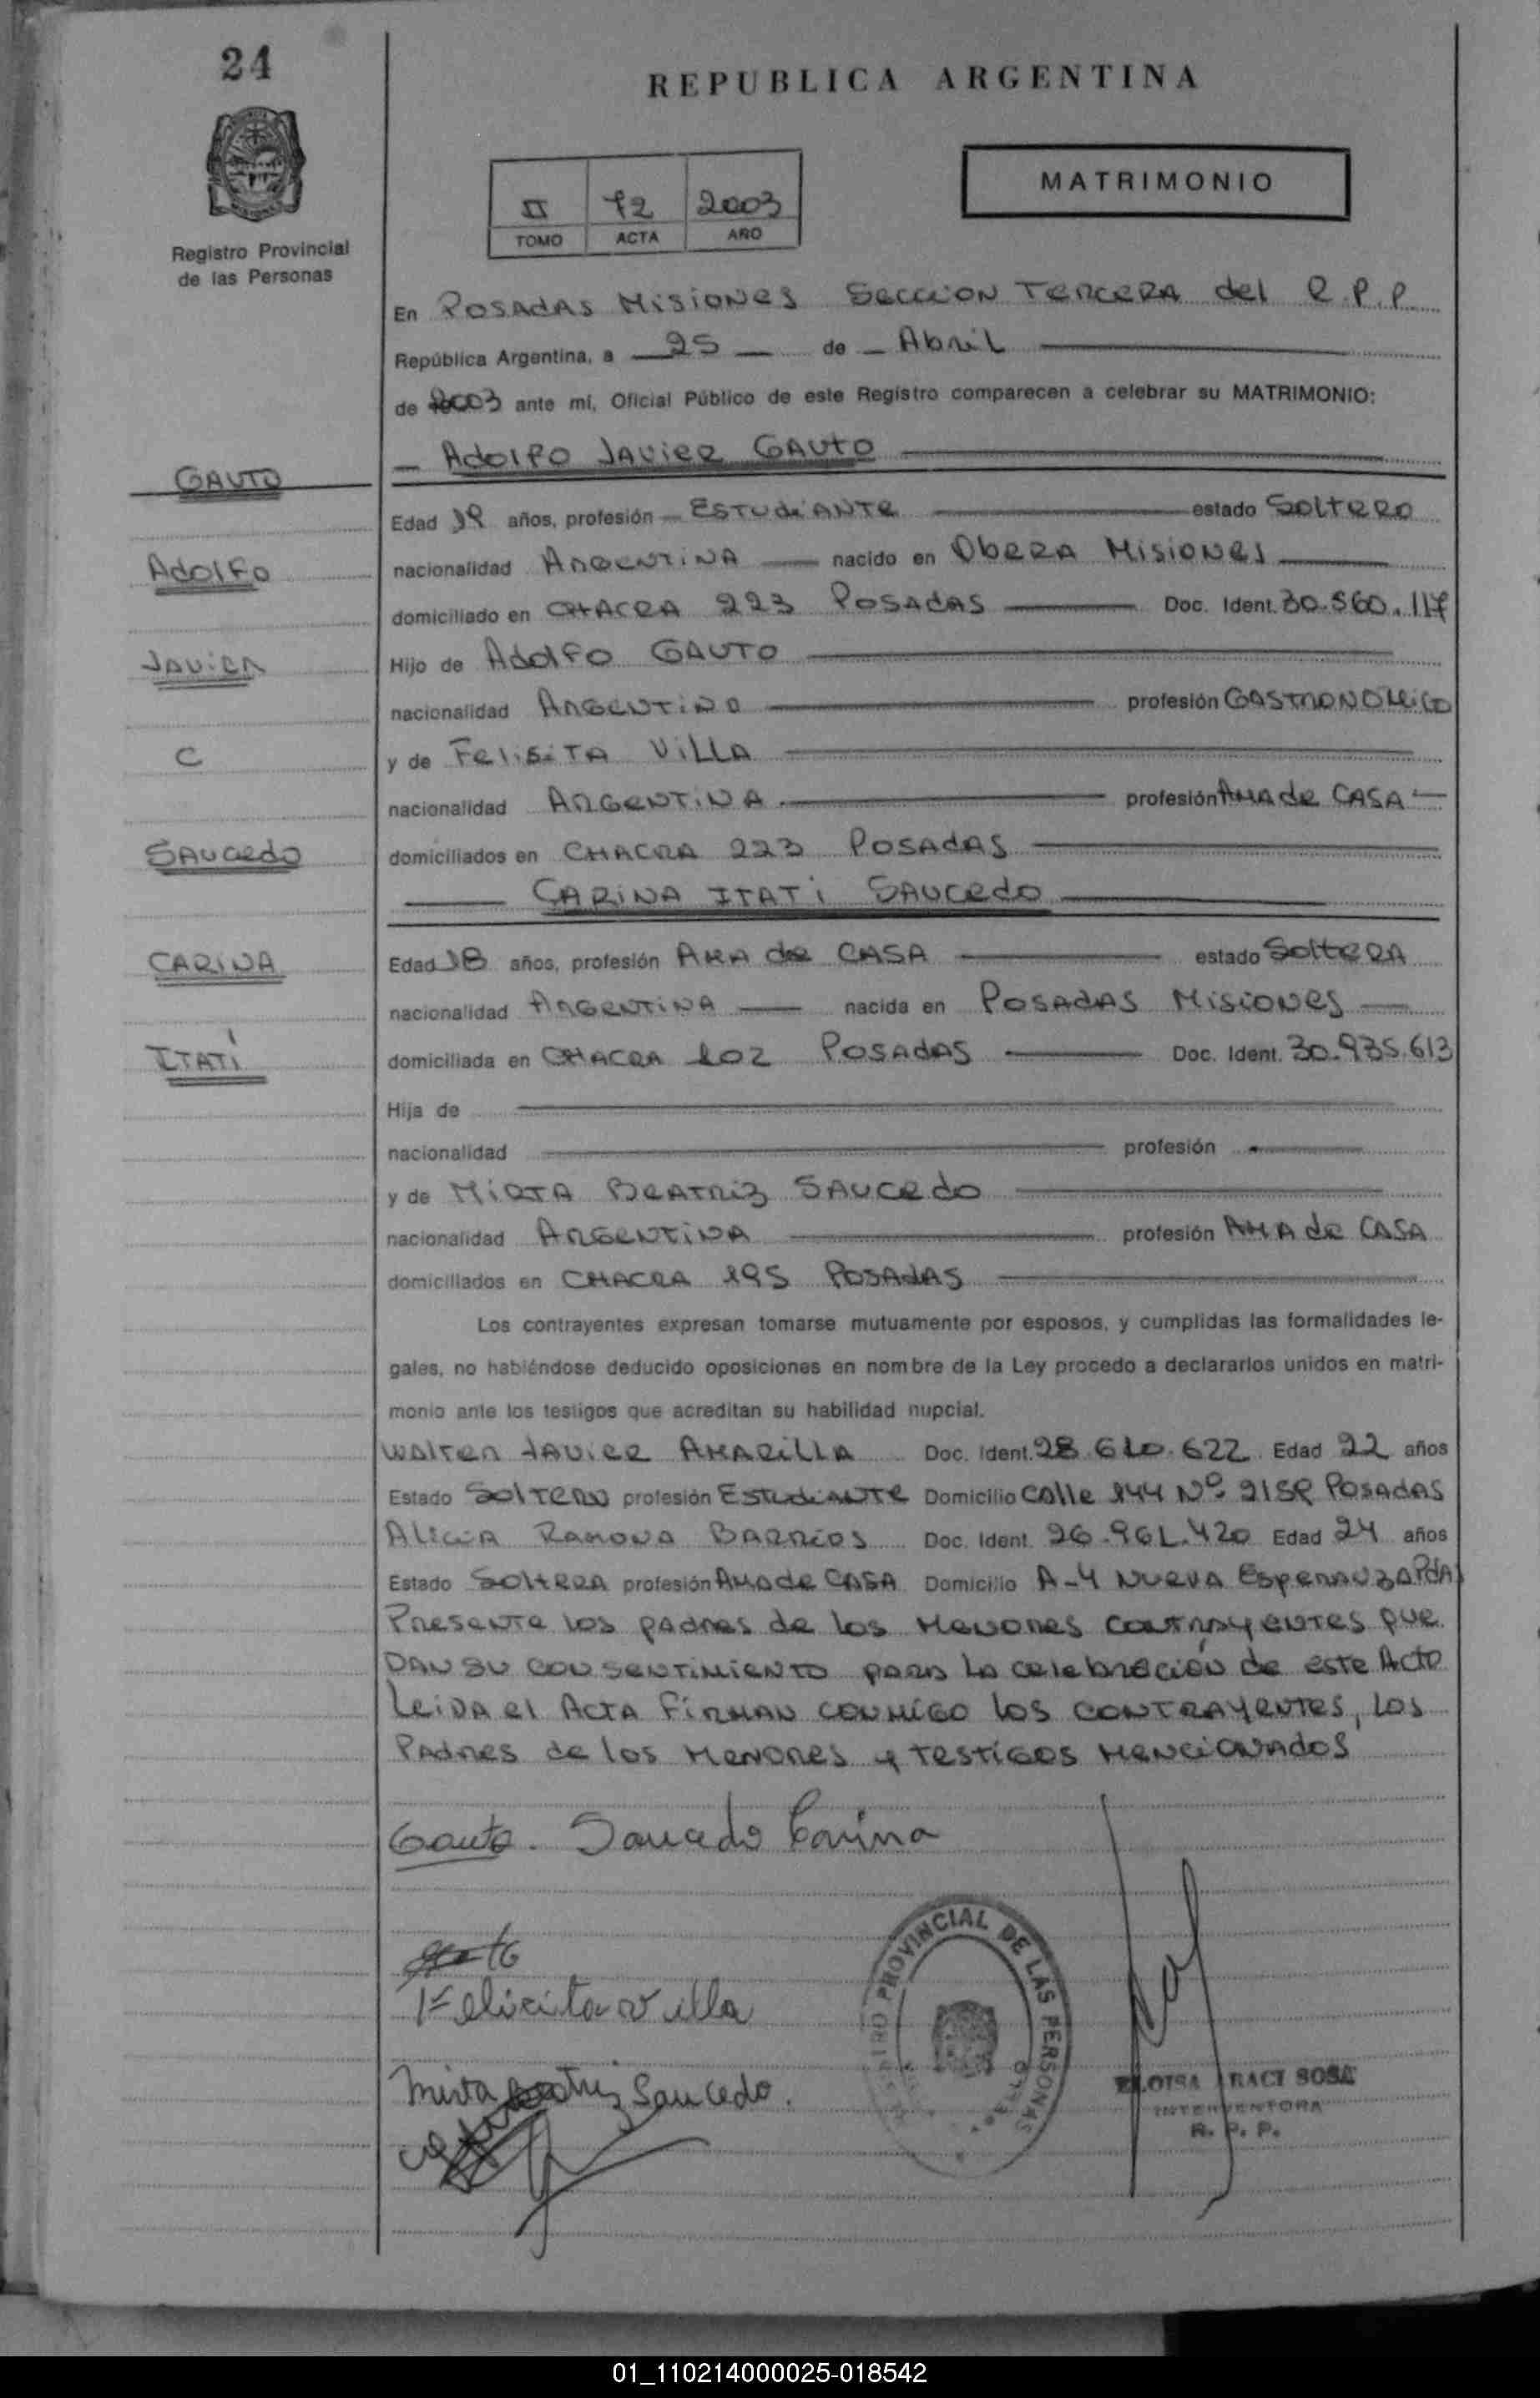 24
REPUBLICA ARGENTINA
MATRIMONIO
II 72 2003
TOMO ACTA AÑO
Registro Provincial
de las Personas
En POSADAS MISIONES SECCION TERCERA del R.P.P
República Argentina, a 25 de Abril
de 2003 ante mí, Oficial Público de este Registro comparecen a celebrar su MATRIMONIO:
Adolfo JAVIER GAUTO
GAUTO
Edad 19 años, profesión ESTUDIANTE estado SOLTERO
Adolfo
nacionalidad ARGENTINA nacido en OBERA MISIONES
domiciliado en CHACRA 223 POSADAS Doc. Ident. 30.560.117
JAVIER
Hijo de Adolfo GAUTO
nacionalidad ARGENTINO profesión GASTRONOMICO
C
y de FELISITA VILLA
nacionalidad ARGENTINA profesión AMA de CASA
SAUCEDO
domiciliados en CHACRA 223 POSADAS
CARINA ITATI SAUCEDO
CARINA
Edad 18 años, profesión AMA de CASA estado SOLTERA
nacionalidad ARGENTINA nacida en POSADAS MISIONES
ITATÍ
domiciliada en CHACRA 102 POSADAS Doc. Ident. 30.935.613
Hija de
nacionalidad profesión
y de MIRTA BEATRIZ SAUCEDO
nacionalidad ARGENTINA profesión AMA de CASA
domiciliados en CHACRA 195 POSADAS
Los contrayentes expresan tomarse mutuamente por esposos, y cumplidas las formalidades le-
gales, no habiéndose deducido oposiciones en nombre de la Ley procedo a declararlos unidos en matri-
monio ante los testigos que acreditan su habilidad nupcial.
WALTER JAVIER AMARILLA Doc. Ident. 28.610.622 Edad 22 años
Estado SOLTERO profesión ESTUDIANTE Domicilio Calle 144 Nº POSADAS
ALICIA RAMONA BARRIOS Doc. Ident. 26.961.420 Edad 24 años
Estado SOLTERA profesión AMA de CASA Domicilio A-4 NUEVA ESPERANZA PdA
PRESENTE los padres de los MENORES CONTRAYENTES que
DAN SU CONSENTIMIENTO para la celebración de este Acto
LEIDA el ACTA FIRMAN CONMIGO los CONTRAYENTES, LOS
PADRES de los MENORES y TESTIGOS MENCIONADOS
Gauto. Saucedo Carina
Felicita Villa
Mirta Beatriz Saucedo.
PROVINCIAL DE LAS PERSONAS
ELOISA ARACI SOSA
INTERVENTORA
R. P. P.
01_110214000025-018542